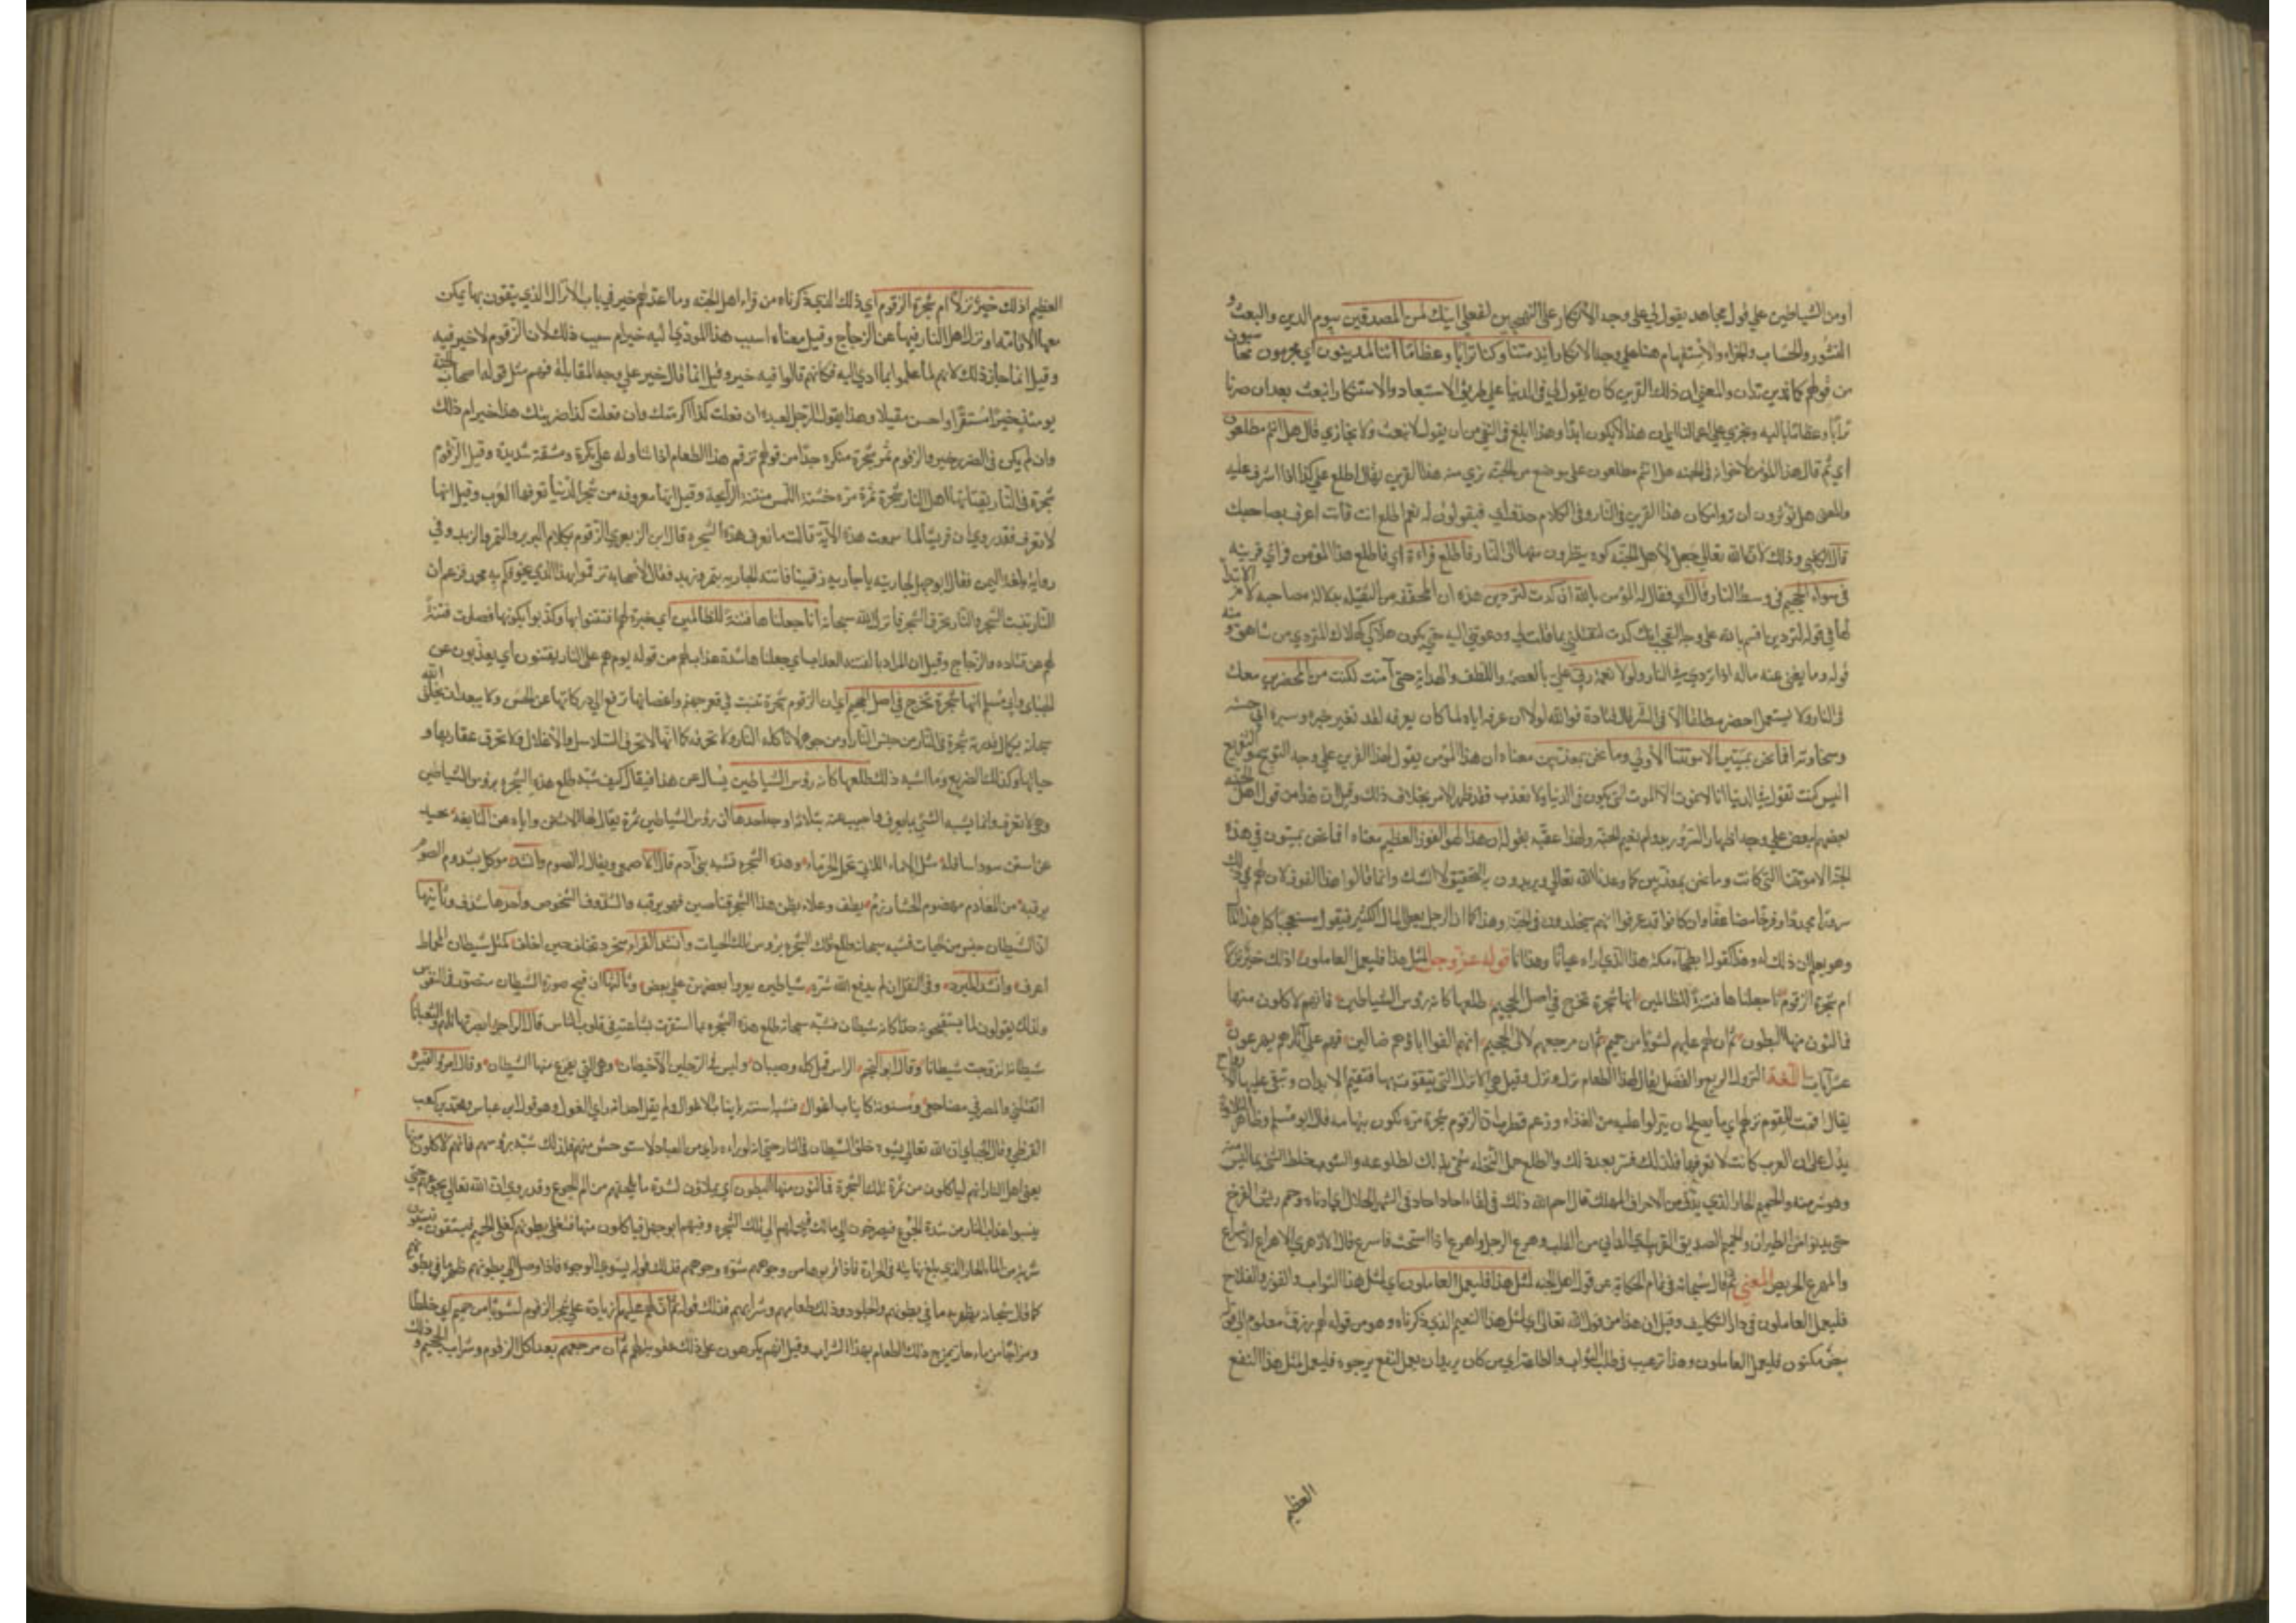 او من الشياطين على قول مجاهد يقول لي على وجه الانكار على التهجين لفعلي اينك لمن المصدقين بيوم الدين والبعث و
النشور والحساب والجزاء والاستفهام هنا على وجه الانكار ائذا متنا وكنا ترابا وعظاما ائنا لمدينون اي مجزيون محاسبون
من قولهم كما تدين تدان والمعنى ان ذلك القرين كان يقول لي في الدنيا على طريق الاستبعاد والاستنكار انبعث بعد ان صرنا
ترابا وعظاما بالية ونجزى على اعمالنا اي ان هذا لا يكون ابدا وهذا ابلغ في النفي من ان يقول لا نبعث ولا نجازى قال هل انتم مطلعون
اي ثم قال هذا المؤمن لاخوانه في الجنة هل انتم مطلعون على موضع من الجنة نرى منه هذا القرين يقال اطلع على كذا اذا اشرف عليه
والمعنى هل تؤثرون ان تروا مكان هذا القرين في النار وفي الكلام حذف اي فيقولون له نعم اطلع انت فانت اعرف بصاحبك
قال الكلبي وذلك لان الله تعالى جعل لاهل الجنة كوة ينظرون منها الى النار فاطلع فراه اي فاطلع هذا المؤمن فراى قرينه
في سواء الجحيم في وسط النار قال اي فقال له المؤمن تالله ان كدت لتردين هذه ان المخففة من الثقيلة بدلالة مصاحبة لام الابتداء
لها في قوله لتردين اقسم بالله على وجه التعجب انك كدت لتهلكني بما قلت لي ودعوتني اليه حتى يكون هلاكي كهلاك المتردي من شاهق ومنه
قوله وما يغني عنه ماله اذا تردى في النار ولولا نعمة ربي علي بالعصمة واللطف والهداية حتى آمنت لكنت من المحضرين معك
في النار ولا يستعمل احضر مطلقا الا في الشر قال قتادة فوالله لولا ان الله عرفه اياه لما كان يعرفه لقد تغير حبره وسبره اي حسنه
وسحناؤه افما نحن بميتين الا موتتنا الاولى وما نحن بمعذبين معناه ان هذا المؤمن يقول لهذا القرين على وجه التوبيخ والتقريع
اليس كنت تقول في الدنيا انا لا نموت الا الموت التي تكون في الدنيا ولا نعذب فقد ظهر الامر بخلاف ذلك وقيل ان هذا من قول اهل الجنة
بعضهم لبعض على وجه اظهار السرور بدوام نعيم الجنة ولهذا عقبه بقوله ان هذا لهو الفوز العظيم معناه افما نحن بميتين في هذه
الجنة الا موتتنا التي كانت وما نحن بمعذبين كما وعدنا الله تعالى ويريدون به التحقيق لا الشك وانما قالوا هذا القول لان لهم في ذلك
سرورا مجددا وفرحا مضاعفا وان كانوا قد عرفوا انهم سيخلدون في الجنة وهذا كما ان الرجل يعطى المال الكثير فيقول مستعجبا كل هذا لي
وهو يعلم ان ذلك له وهذا كقوله ابطحاء مكة هذا الذي اراه عيانا وهذا انا قوله عز وجل لمثل هذا فليعمل العاملون اذلك خير نزلا
ام شجرة الزقوم انا جعلناها فتنة للظالمين انها شجرة تخرج في اصل الجحيم طلعها كانه رؤس الشياطين فانهم لآكلون منها
فمالئون منها البطون ثم ان لهم عليها لشوبا من حميم ثم ان مرجعهم لالى الجحيم انهم الفوا اباؤهم ضالين فهم على آثارهم يهرعون
عشر آيات اللغة النزل الريع والفضل يقال لهذا الطعام نزل ونزل وقيل هي الانزال التي يتقوت بها فتقيم الابدان وتبقى عليها الارواح
يقال اقمت للقوم نزلهم اي ما يصلح ان ينزلوا عليه من الغذاء وزعم قطرب ان الزقوم شجرة مرة تكون بتهامة قال ابو مسلم وظاهر التلاوة
يدل على ان العرب كانت لا تعرفها فلذلك فسر بعد ذلك والطلع حمل النخلة سمي بذلك لطلوعه والشوب خلط الشيء بما ليس منه
وهو شر منه والحميم الحار الذي يدنو من الاحراق المهلك قال احم الله ذلك في لقاء احاد احاد في الشهر الحلال اي ادناه وحمم ريش الفرخ
حتى يدنو من الطيران والحميم الصديق القريب اي الداني من القلب وهرع الرجل واهرع اذا استحث فاسرع قال الازهري الاهراع الاسراع
والمهرع الحريص المعنى ثم قال سبحانه في تمام الحكاية عن قول اهل الجنة لمثل هذا فليعمل العاملون اي لمثل هذا الثواب والفوز والفلاح
فليعمل العاملون في دار التكليف وقيل ان هذا من قول الله تعالى اي لمثل هذا النعيم الذي ذكرناه وهو من قوله لهم رزق معلوم الى قوله
بيض مكنون فليعمل العاملون وهذا ترغيب في طلب الثواب والطاعة اي من كان يريد ان يعمل لنفع يرجوه فليعمل لمثل هذا النفع
العظيم
العظيم اذلك خير نزلا ام شجرة الزقوم اي ذلك الذي ذكرناه من قراء اهل الجنة وما اعد لهم خير في باب الانزال الذي يتقوت بها يمكن
معها الاقامة او نزل اهل النار فيها عن الزجاج وقيل معناه اسبب هذا المؤدي اليه خير ام سبب ذلك لان الزقوم لا خير فيه
وقيل انما جاز ذلك لانهم لما عملوا بما ادى اليه فكانهم قالوا فيه خير وقيل انما قال خير على وجه المقابلة فهم مثل قوله اصحاب الجنة
يومئذ خير مستقرا واحسن مقيلا وهذا يقول الرجل لعبده ان فعلت كذا اكرمتك وان فعلت كذا ضربتك هذا خير ام ذلك
وان لم يكن في الضرب خير والزقوم ثمر شجرة منكرة جدا من قولهم تزقم هذا الطعام اذا تناوله على تكره ومشقة شديدة وقيل الزقوم
شجرة في النار يقتاتها اهل النار شجرة ثمرة مرة خشنة اللمس منتنة الرائحة وقيل انها معروفة من شجر الدنيا تعرفها العرب وقيل انها
لا تعرف فقد روي ان قريشا لما سمعت هذه الآية قالت ما نعرف هذه الشجرة قال ابن الزبعرى الزقوم بكلام البربر والتمر والزبد وفي
رواية بلغة اليمن فقال ابو جهل لجاريته يا جارية زقمينا فاتته الجارية بتمر وزبد فقال لاصحابه تزقموا بهذا الذي يخوفكم به محمد فزعم ان
النار تنبت الشجرة والنار تحرق الشجر فانزل الله سبحانه انا جعلناها فتنة للظالمين اي خبرة لهم افتتنوا بها وكذبوا بكونها فصارت فتنة
لهم عن قتادة والزجاج وقيل ان المراد بالفتنة العذاب اي جعلناها شدة عذاب لهم من قوله يوم هم على النار يفتنون اي يعذبون عن
الجبائي وابي مسلم انها شجرة تخرج في اصل الجحيم اي ان الزقوم شجرة تنبت في قعر جهنم واغصانها ترفع الى دركاتها عن الحسن ولا يبعد ان يخلق الله
سبحانه بكمال قدرته شجرة في النار من جنس النار او من جوهر لا تاكله النار ولا تحرقه كما انها لا تحرق السلاسل والاغلال وكما لا تحرق عقاربها و
حياتها وكذلك الضريع وما اشبه ذلك طلعها كانه رؤس الشياطين يسال عن هذا فيقال كيف شبه طلع هذه الشجرة برؤس الشياطين
وهي لا تعرف وانما يشبه الشيء بما يعرف واجيب عنه بثلاثة اوجه احدها ان رؤس الشياطين ثمرة يقال لها الاستن واياه عنى النابغة بقوله
تحيد عن استن سود اسافله مثل الاماء اللاتي تحمل الحزما وهذه الشجرة تشبه بني آدم قال الاصمعي ويقال له الصوم وانشد موكل بشدوف الصوم
يرقبه من المغارم مهضوم الحشا زرم يصف وعلا يظن هذا الشجر قناصين فهو يرقبه والشدوف الشخوص واحدها شدف وثانيها
ان الشيطان جنس من الحيات فشبه سبحانه طلع تلك الشجرة برؤس تلك الحيات وانشد الفراء عنجرد تحلف حين احلف كمثل شيطان الحماط
اعرف وانشد المبرد وفي البقل ان لم يدفع الله شره شياطين يعدو بعضهن على بعض وثالثها ان قبح صورة الشيطان متصور في النفوس
ولذلك يقولون لما يستقبحونه جدا كانه شيطان فشبه سبحانه طلع هذه الشجرة بما استقرت بشاعته في قلوب الناس قال الراجز ابصرتها تلتهم الثعبانا
شيطانة تزوجت شيطانا وقال ابو النجم الراس قمل كله وصيبان وليس في الرجلين الا خيطان وهي التي يفزع منها الشيطان وقال امرؤ القيس
اتقتلني والمشرفي مضاجعي ومسنونة كانياب اغوال فشبه اسنته بانياب الاغوال ولم يقل احد انه راى الغول وهو قول ابن عباس ومحمد بن كعب
القرظي وقال الجبائي ان الله تعالى يشوه خلق الشيطان في النار حتى انه لو رآه راء من العباد لاستوحش منهم فلذلك شبه برؤسهم فانهم لآكلون منها
يعني اهل النار انهم لياكلون من ثمرة تلك الشجرة فمالئون منها البطون اي يملؤن لشدة ما يلحقهم من الم الجوع وقد روي ان الله تعالى يجوعهم حتى
ينسوا عذاب النار من شدة الجوع فيصرخون الى مالك فيحملهم الى تلك الشجرة وفيهم ابو جهل فياكلون منها فتغلي بطونهم كغلي الحميم فيستقون فيسقون
شربة من الماء الحار الذي بلغ نهايته في الحرارة فاذا قربوها من وجوههم شوت وجوههم فذلك قوله يشوي الوجوه فاذا وصل الى بطونهم صهر ما في بطونهم
كما قال سبحانه يصهر به ما في بطونهم والجلود وذلك طعامهم وشرابهم فذلك قوله ثم ان لهم عليها زيادة على شجر الزقوم لشوبا من حميم اي خلطا
ومزاجا من ماء حار يمزج ذلك الطعام بهذا الشراب وقيل انهم يكرهون على ذلك عقوبة لهم ثم ان مرجعهم بعد اكل الزقوم وشراب الحميم لالى الجحيم وذلك